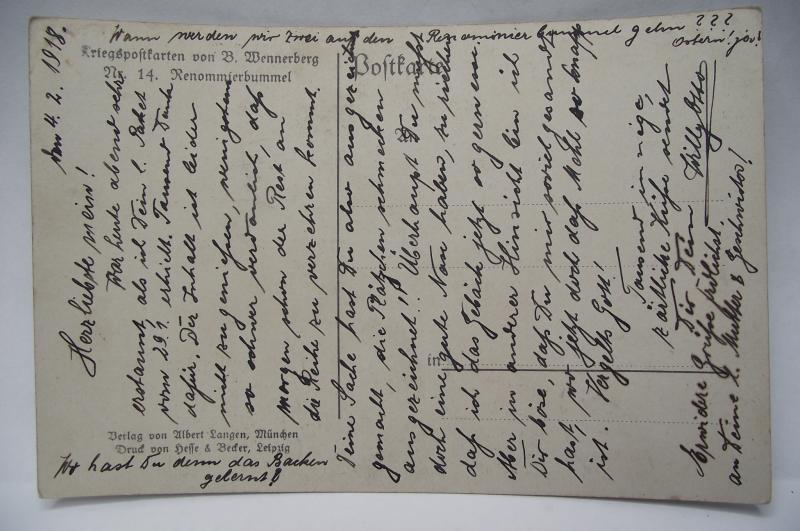 Wann werden wir zwei auf den Renommierbummel gehn ???
Ostern! jov!
Kriegspostkarten von B. Wennerberg
Nr. 14. Renommierbummel
Postkarte
den 4. 2. 1918.
Herzliebste mein!
War heute abend sehr
erstaunt, als ich Dein l. Paket
vom 29.1. erhielt. Tausend Dank
dafür. Der Inhalt ist leider
nicht zu genießen, wenigstens
so schwer verdaulich, daß
morgen schon der Rest an
die Reihe zu verzehren kommt.
Deine Sache hast Du also ausgezeichnet
gemacht, die Plätzchen schmecken
ausgezeichnet! Überhaupt Du mußt
doch eine gute Nase haben, zu riechen
daß ich das Gebäck jetzt so gern esse.
Aber in anderer Hinsicht bin ich
Dir böse, daß Du mir soviel gesandt
hast, wo jetzt doch das Mehl so knapp
ist. Vergelts Gott!
Tausend innige,
zärtliche Küsse sendet
Dir Dein Willy Otto
Erwidere Grüße herzlichst
an Deine l. Mutter & Geschwister!
in
Verlag von Albert Langen, München
Druck von Hesse & Becker, Leipzig
Wo hast Du denn das Backen
gelernt?